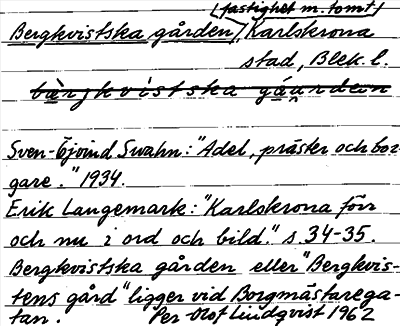 (fastighet m. tomt)
Bergkvistska gården, Karlskrona
stad, Blek. l.
bärjkvistska gåarden
Sven-Öjvind Swahn: "Adel, präster och bor-
gare." 1934.
Erik Langemark: "Karlskrona förr
och nu i ord och bild." s. 34-35.
Bergkvistska gården eller "Bergkvis-
tens gård" ligger vid Borgmästarega-
tan. Per-Olof Lindqvist 1962